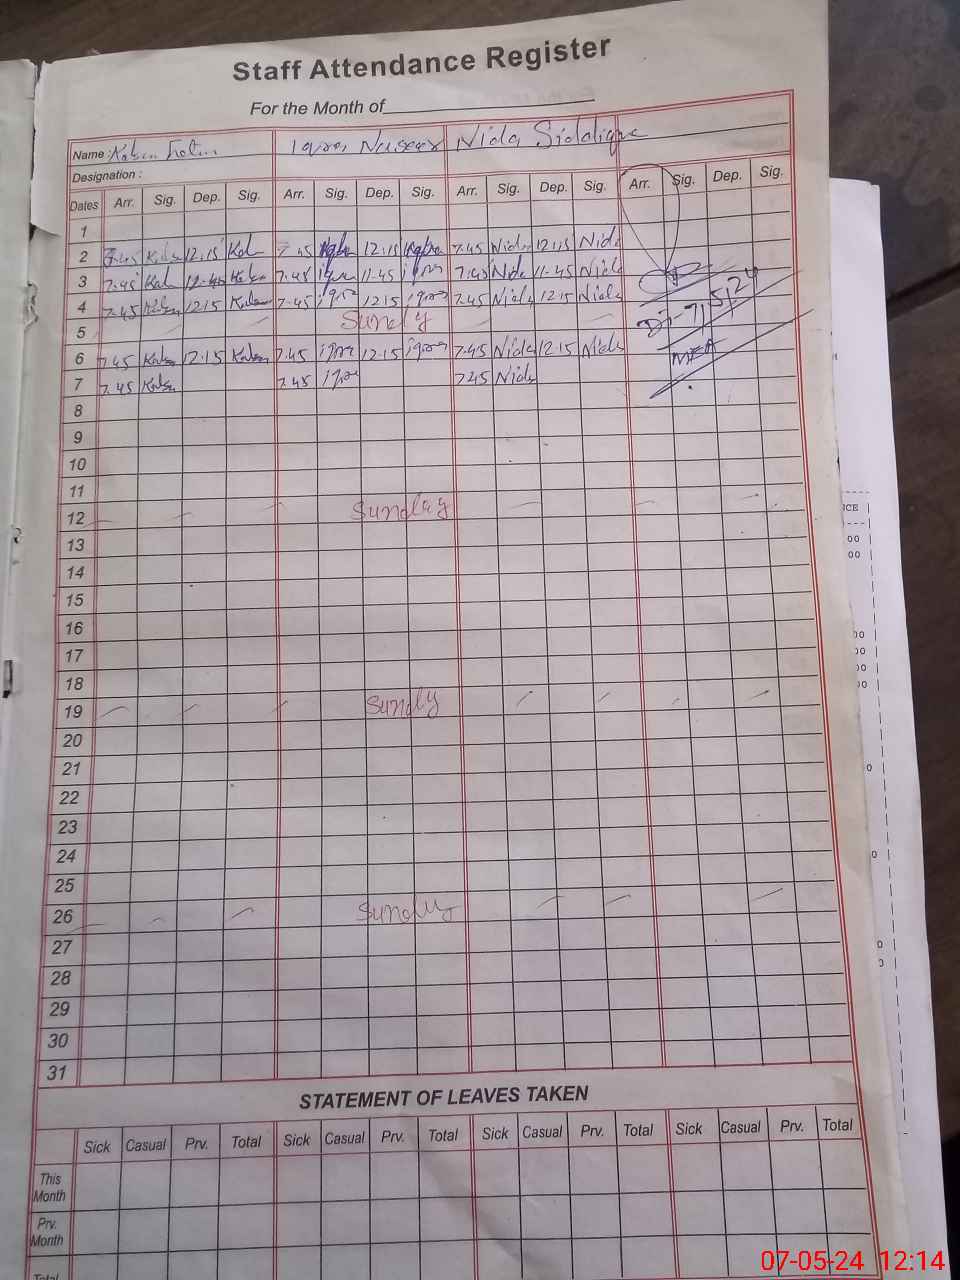 Staff Attendance Register
For the Month of
Name : Iqra Naseer Nida Siddique
Designation :
Dates Arr. Sig. Dep. Sig. Arr. Sig. Dep. Sig. Arr. Sig. Dep. Sig. Arr. Sig. Dep. Sig.
1
2 7.45 12.15 7.45 Iqra 12.15 Iqra 7.45 Nida 12.15 Nida
3 7.45 7.45 iqra 11.45 iqra 7.45 Nida 11.45 Nida
4 7.45 12.15 7.45 iqra 12.15 iqra 7.45 Nida 12.15 Nida
Dt-7/5/24
5 Sunday
6 7.45 12.15 7.45 iqra 12.15 iqra 7.45 Nida 12.15 Nida
MEA
7 7.45 7.45 iqra 7.45 Nida
8
9
10
11
12 Sunday
13
14
15
16
17
18
19 Sunday
20
21
22
23
24
25
26 Sunday
27
28
29
30
31
STATEMENT OF LEAVES TAKEN
Sick Casual Prv. Total Sick Casual Prv. Total Sick Casual Prv. Total Sick Casual Prv. Total
This
Month
Prv.
Month
Total
07-05-24 12:14